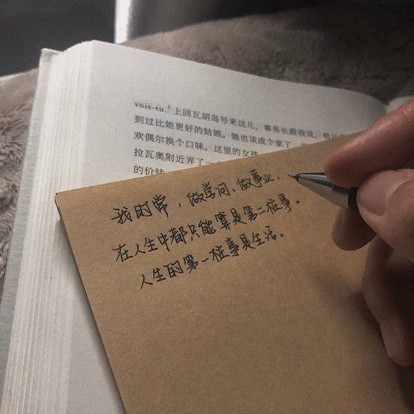 vois-tu.上回瓦胡岛号来这儿，事务长跟我说，他从
到过比她更好的姑娘。她也该成个家了
欢偶尔换个口味。这里的女孩
拉瓦奥附近弄了一
的价钱
我时常，做学问、做事业、
在人生中都只能算是第二桩事。
人生的第一桩事是生活。